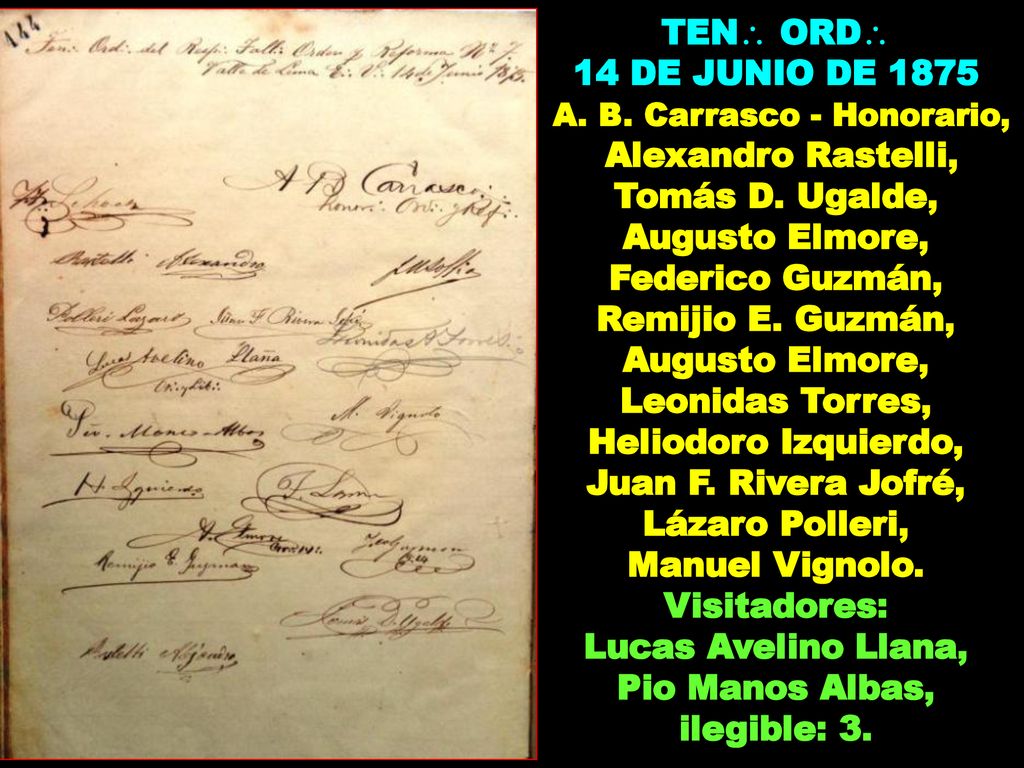 144
Ten∴ Ord∴ del Resp∴ Tall∴ Orden y Reforma Nº 7.
Valle de Lima E∴ V∴ 14 de Junio 1875.
A B Carrasco
honor∴ Ord∴ y Ref∴
Rastelli Alexandro
Polleri Lazaro Juan F. Rivera Jofré
Leonidas A Torres
Lucas Avelino Llaña
M. Vignolo
Pio Manos-Albas
H Izquierdo
A. Elmore
Remijio E. Guzman
Tomas D. Ugalde
Rastelli Alejandro
TEN∴ ORD∴
14 DE JUNIO DE 1875
A. B. Carrasco - Honorario,
Alexandro Rastelli,
Tomás D. Ugalde,
Augusto Elmore,
Federico Guzmán,
Remijio E. Guzmán,
Augusto Elmore,
Leonidas Torres,
Heliodoro Izquierdo,
Juan F. Rivera Jofré,
Lázaro Polleri,
Manuel Vignolo.
Visitadores:
Lucas Avelino Llana,
Pio Manos Albas,
ilegible: 3.